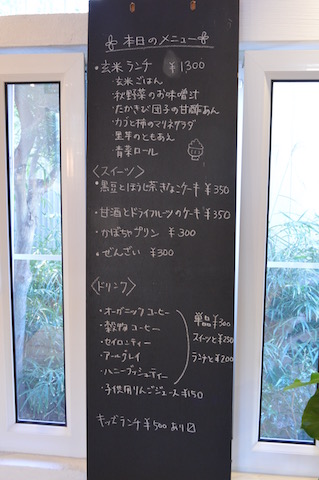 本日のメニュー
・玄米ランチ ¥1300
・玄米ごはん
・秋野菜のお味噌汁
・たかきび団子の甘酢あん
・カブと柿のマリネサラダ
・里芋のともあえ
・青菜ロール
〈スイーツ〉
・黒豆とほうじ茶きなこケーキ ¥350
・甘酒とドライフルーツのケーキ ¥350
・かぼちゃプリン ¥300
・ぜんざい ¥300
〈ドリンク〉
・オーガニックコーヒー
・穀物コーヒー
・セイロンティー
・アールグレイ
・ハニーブッシュティー
単品 ¥300
スイーツと¥250
ランチと¥200
・子供用りんごジュース ¥150
キッズランチ ¥500 あり〼